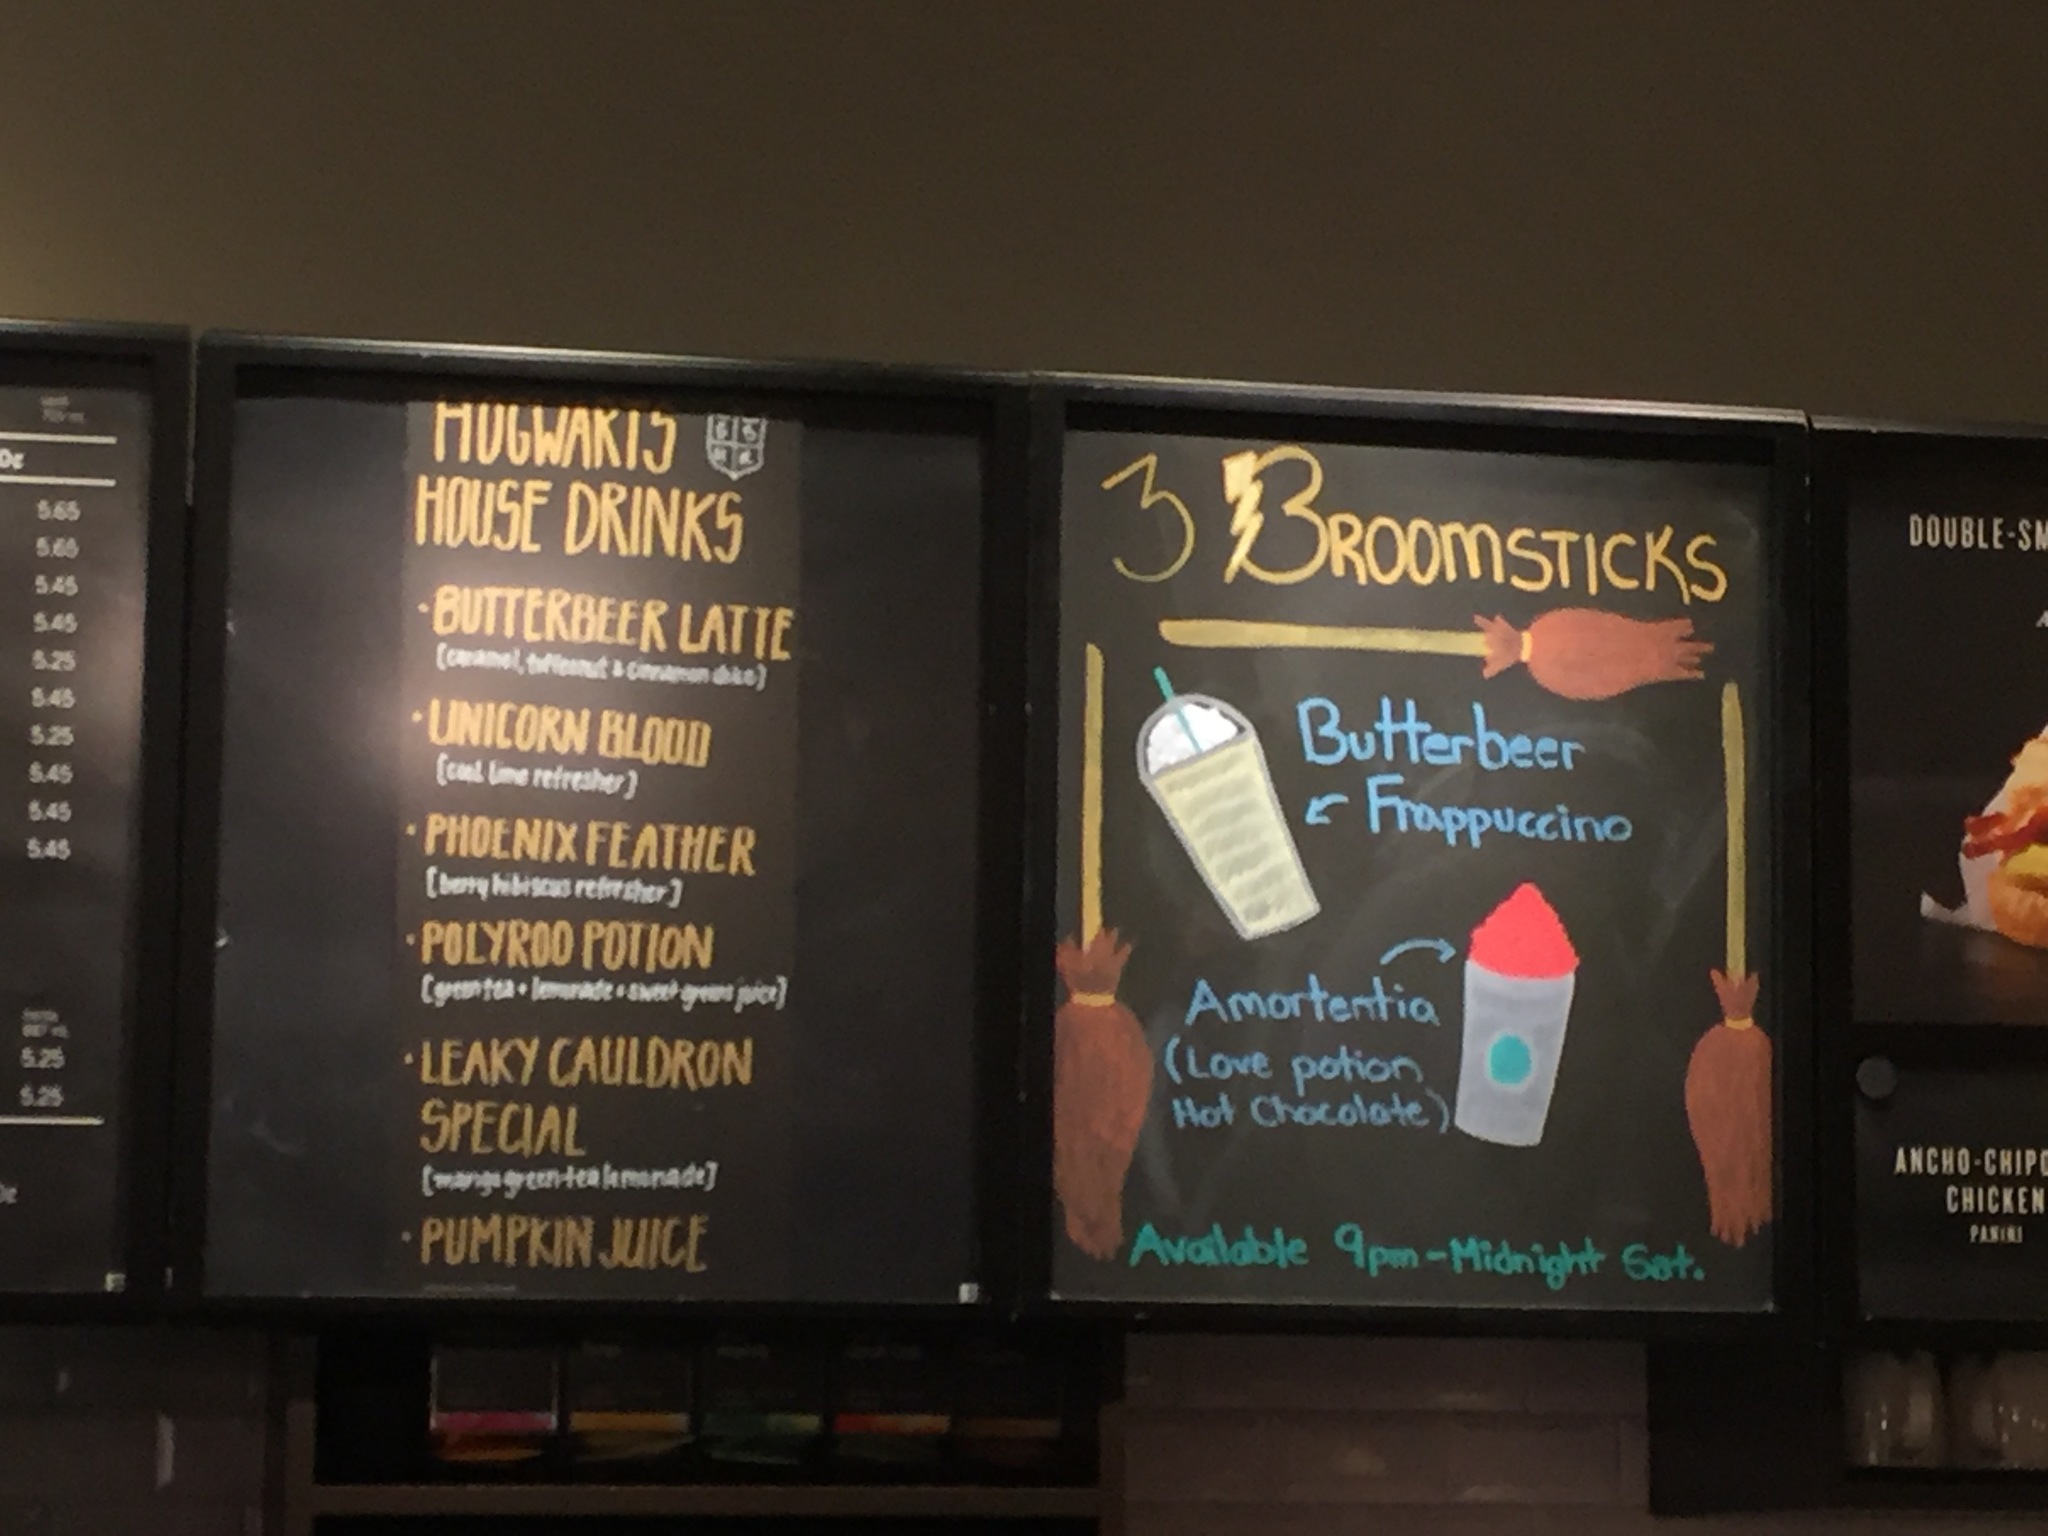 5.65
5.65
5.45
5.45
5.25
5.45
5.25
5.45
5.45
5.45
5.25
5.25
HOGWARTS
HOUSE DRINKS
· BUTTERBEER LATTE
[caramel, toffeenut & cinnamon dolce]
· UNICORN BLOOD
[cool lime refresher]
· PHOENIX FEATHER
[berry hibiscus refresher]
· POLYROO POTION
[green tea + lemonade + sweet greens juice]
· LEAKY CAULDRON
SPECIAL
[mango green tea lemonade]
· PUMPKIN JUICE
3 BROOMSTICKS
Butterbeer
Frappuccino
Amortentia
(Love potion
Hot Chocolate)
Available 9pm-Midnight Sat.
DOUBLE-SM
ANCHO-CHIPO
CHICKEN
PANINI